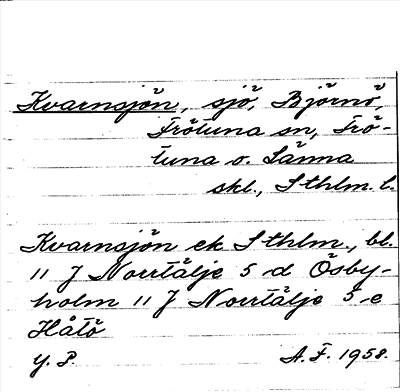 Kvarnsjön, sjö, Björnö,
Frötuna sn, Frö-
tuna o. Länna
skl., Sthlm. l.
Kvarnsjön ek Sthlm., bl.
11 J Norrtälje 5 d Ösby-
holm 11 J Norrtälje 5 e
Håtö
Y. P. A. F. 1958.